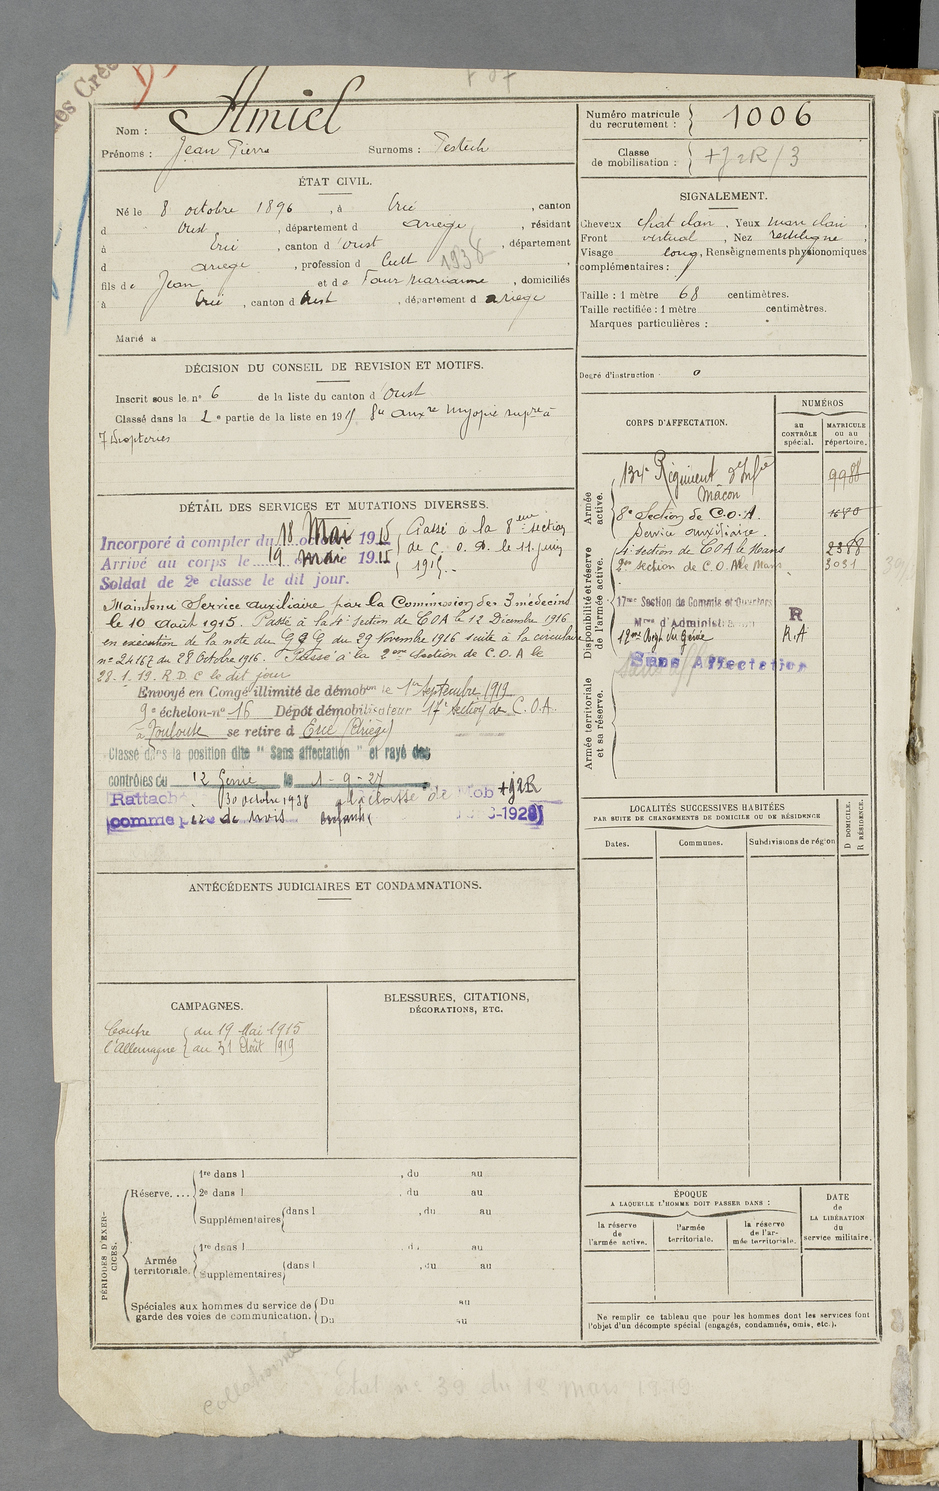 Nom : Amiel
Prénoms : Jean Pierre Surnoms : Testech
Numéro matricule du recrutement : 1006
Classe de mobilisation : +J2R/3
ÉTAT CIVIL.
Né le 8 octobre 1896, à Ercé, canton
d Oust, département d Ariège, résidant
à Ercé, canton d Oust, département
d Ariège, profession d Cult 1938
fils de Jean et de Faur Marianne, domiciliés
à Ercé, canton d Oust, département d Ariège
Marié à
SIGNALEMENT.
Cheveux chat clair, Yeux mar clair,
Front vertical, Nez rectiligne,
Visage long, Renseignements physionomiques
complémentaires :
Taille : 1 mètre 68 centimètres.
Taille rectifiée : 1 mètre centimètres.
Marques particulières :
Degré d'instruction : 0
DÉCISION DU CONSEIL DE REVISION ET MOTIFS.
Inscrit sous le n° 6 de la liste du canton d Oust
Classé dans la 2e partie de la liste en 1915 Sce auxre Myopie supre à
7 Dioptries
DÉTAIL DES SERVICES ET MUTATIONS DIVERSES.
Incorporé à compter du 18 Mai 1915
Arrivé au corps le 19 mai 1915
Soldat de 2e classe le dit jour.
Passé à la 8eme section
de C. O. A. le 11 juin
1915.
Maintenu Service auxiliaire par la Commission des 3 médecins
le 10 Août 1915. Passé à la 4e Section de COA le 12 Décembre 1916
en exécution de la note du G Q G du 29 Novembre 1916 suite à la circulaire
n° 24167 du 28 Octobre 1916. Passé à la 2eme Section de C.O.A le
28.1.19. R.D.C le dit jour
Envoyé en Congé illimité de démobon le 1er Septembre 1919
9e échelon n° 16 Dépôt démobilisateur 17e section de C.O.A.
à Toulouse se retire à Ercé (Ariège)
Classé dans la position dite "Sans affectation" et rayé des
contrôles du 12 Génie le 1-9-27
Rattaché 30 octobre 1938 à la classe de Mob +J2R
comme père de trois enfants
CORPS D'AFFECTATION.
NUMÉROS
au CONTRÔLE spécial.
MATRICULE ou au répertoire.
Armée active.
134e Régiment d'Infie 9988
Mâcon
8e Section de C.O.A. 1680
Service auxiliaire.
Disponibilité et réserve de l'armée active.
4e section de COA le Mans 2388
2eme section de C.O.A le Mans 3031
17me Section de Commis et Ouvriers
Mres d'Administration R
12eme Regt du Génie R.A
Sans Affectation
Armée territoriale et sa réserve.
LOCALITÉS SUCCESSIVES HABITÉES
PAR SUITE DE CHANGEMENTS DE DOMICILE OU DE RÉSIDENCE
Dates. Communes. Subdivisions de région
D DOMICILE. R RÉSIDENCE.
ANTÉCÉDENTS JUDICIAIRES ET CONDAMNATIONS.
CAMPAGNES.
Contre du 19 Mai 1915
l'Allemagne au 31 Août 1919
BLESSURES, CITATIONS,
DÉCORATIONS, ETC.
PÉRIODES D'EXERCICES.
Réserve.... 1re dans l , du au
2e dans l , du au
Supplémentaires dans l , du au
Armée territoriale. 1re dans l , du au
Supplémentaires dans l , du au
Spéciales aux hommes du service de garde des voies de communication. Du au
Du au
ÉPOQUE
A LAQUELLE L'HOMME DOIT PASSER DANS :
la réserve de l'armée active.
l'armée territoriale.
la réserve de l'armée territoriale.
DATE de LA LIBÉRATION du service militaire.
Ne remplir ce tableau que pour les hommes dont les services font
l'objet d'un décompte spécial (engagés, condamnés, omis, etc.).
Collationné
Etat n° 39 du 18 mars 1919